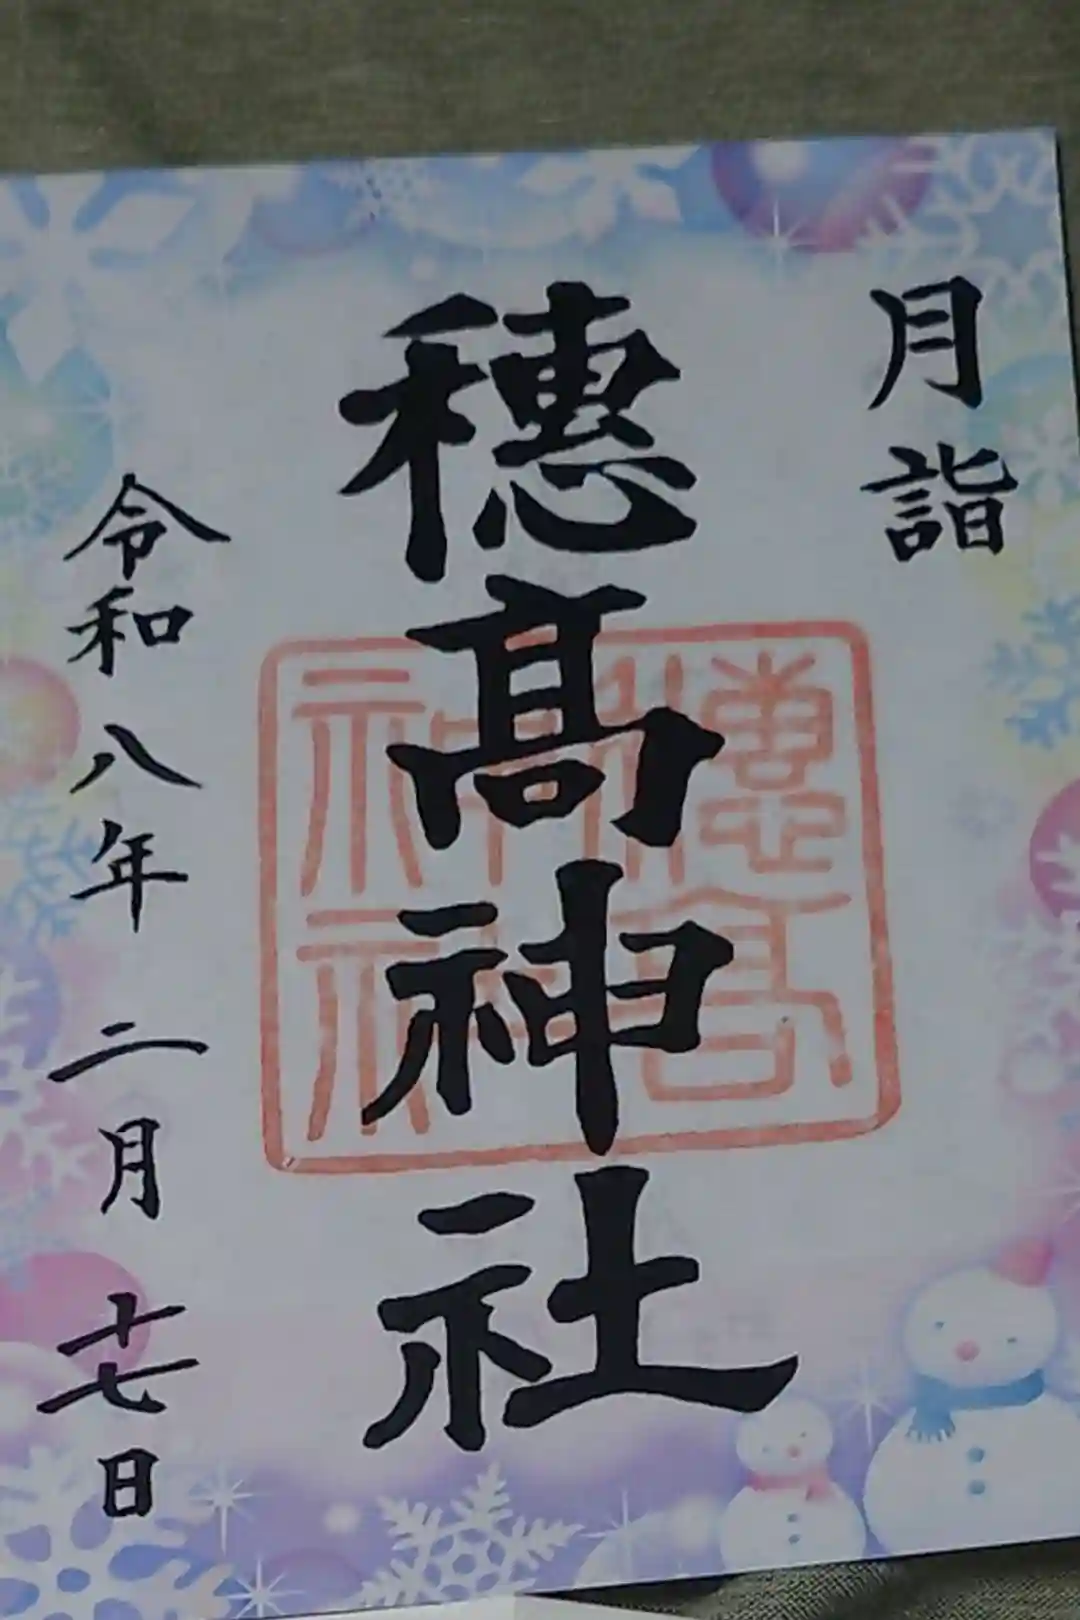 月詣
穗髙神社
令和八年二月十七日
穗高
神社